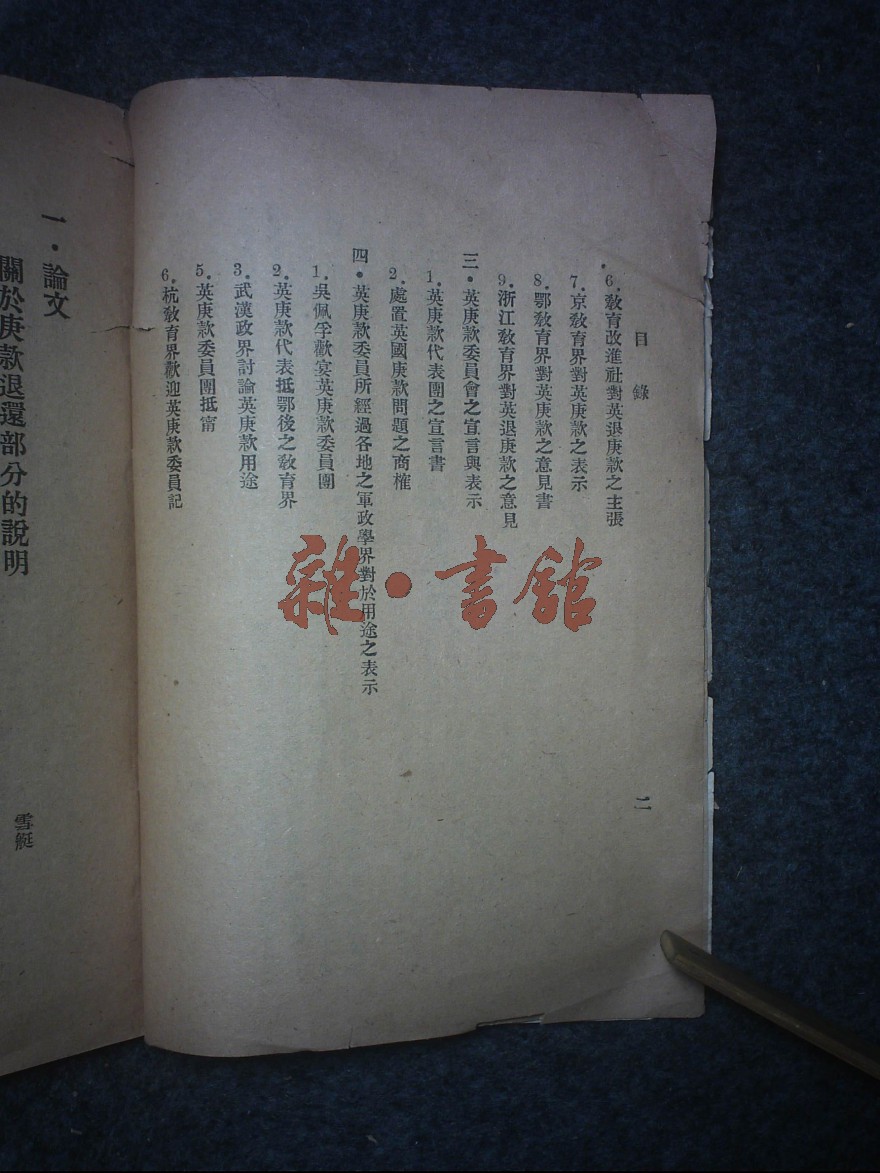 目錄
二
6.敎育改進社對英退庚款之主張
7.京敎育界對英庚款之表示
8.鄂敎育界對英庚款之意見書
9.浙江敎育界對英退庚款之意見
三·英庚款委員會之宣言與表示
1.英庚款代表團之宣言書
2.處置英國庚款問題之商榷
四·英庚款委員所經過各地之軍政學界對於用途之表示
1.吳佩孚歡宴英庚款委員團
2.英庚款代表抵鄂後之敎育界
3.武漢政界討論英庚款用途
5.英庚款委員團抵甯
6.杭敎育界歡迎英庚款委員記
一·論文
關於庚款退還部分的說明
雪艇
雜·書館